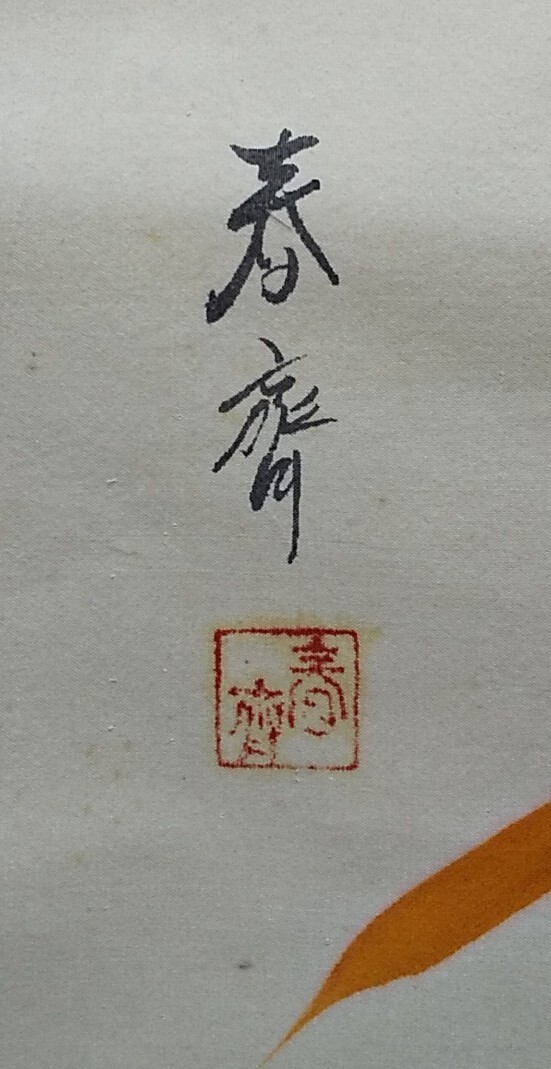 春齋
春齋